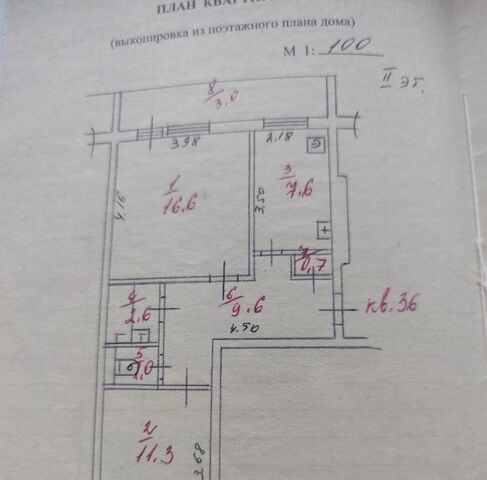 ПЛАН КВАРТИ
(выкопировка из поэтажного плана дома)
М 1: 100
II эт.
8/3.0
3.98
2.18
1/16.6
4.16
3/7.6
3.50
7/0.7
6/9.6
4.50
кв.36
4/2.6
5/1.0
2/11.3
3.68